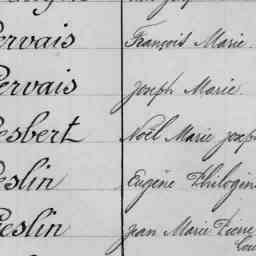 ervais François Marie
ervais Joseph Marie
esbert Noël Marie Joseph
eslin Eugène Philogin
eslin Jean Marie Pierre
Lou